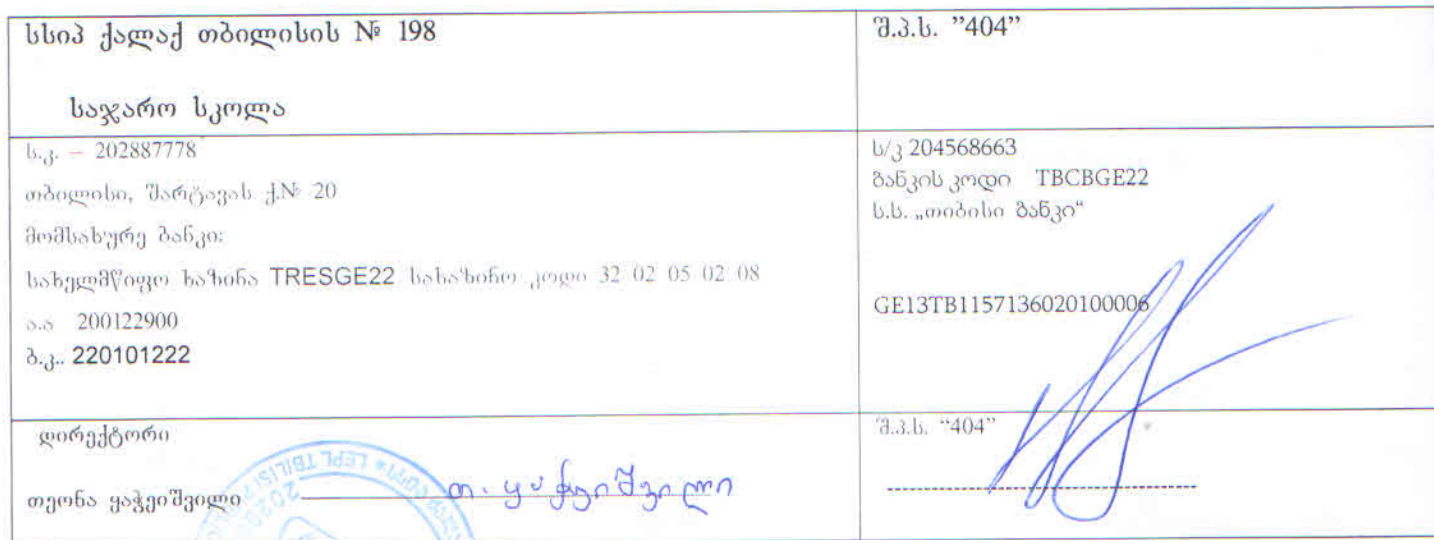 სსიპ ქალაქ თბილისის № 198
საჯარო სკოლა
შ.პ.ს. ”404”
ს.კ. – 202887778
თბილისი, შარტავას ქ.№ 20
მომსახურე ბანკი:
სახელმწიფო ხაზინა TRESGE22 სახაზინო კოდი 32 02 05 02 08
ა.ა 200122900
ბ.კ.. 220101222
ს/კ 204568663
ბანკის კოდი TBCBGE22
ს.ს. „თიბისი ბანკი“
GE13TB1157136020100006
დირექტორი
თეონა ყაჭეიშვილი
თ. ყაჭეიშვილი
შ.პ.ს. “404”
LEPL TBILISI